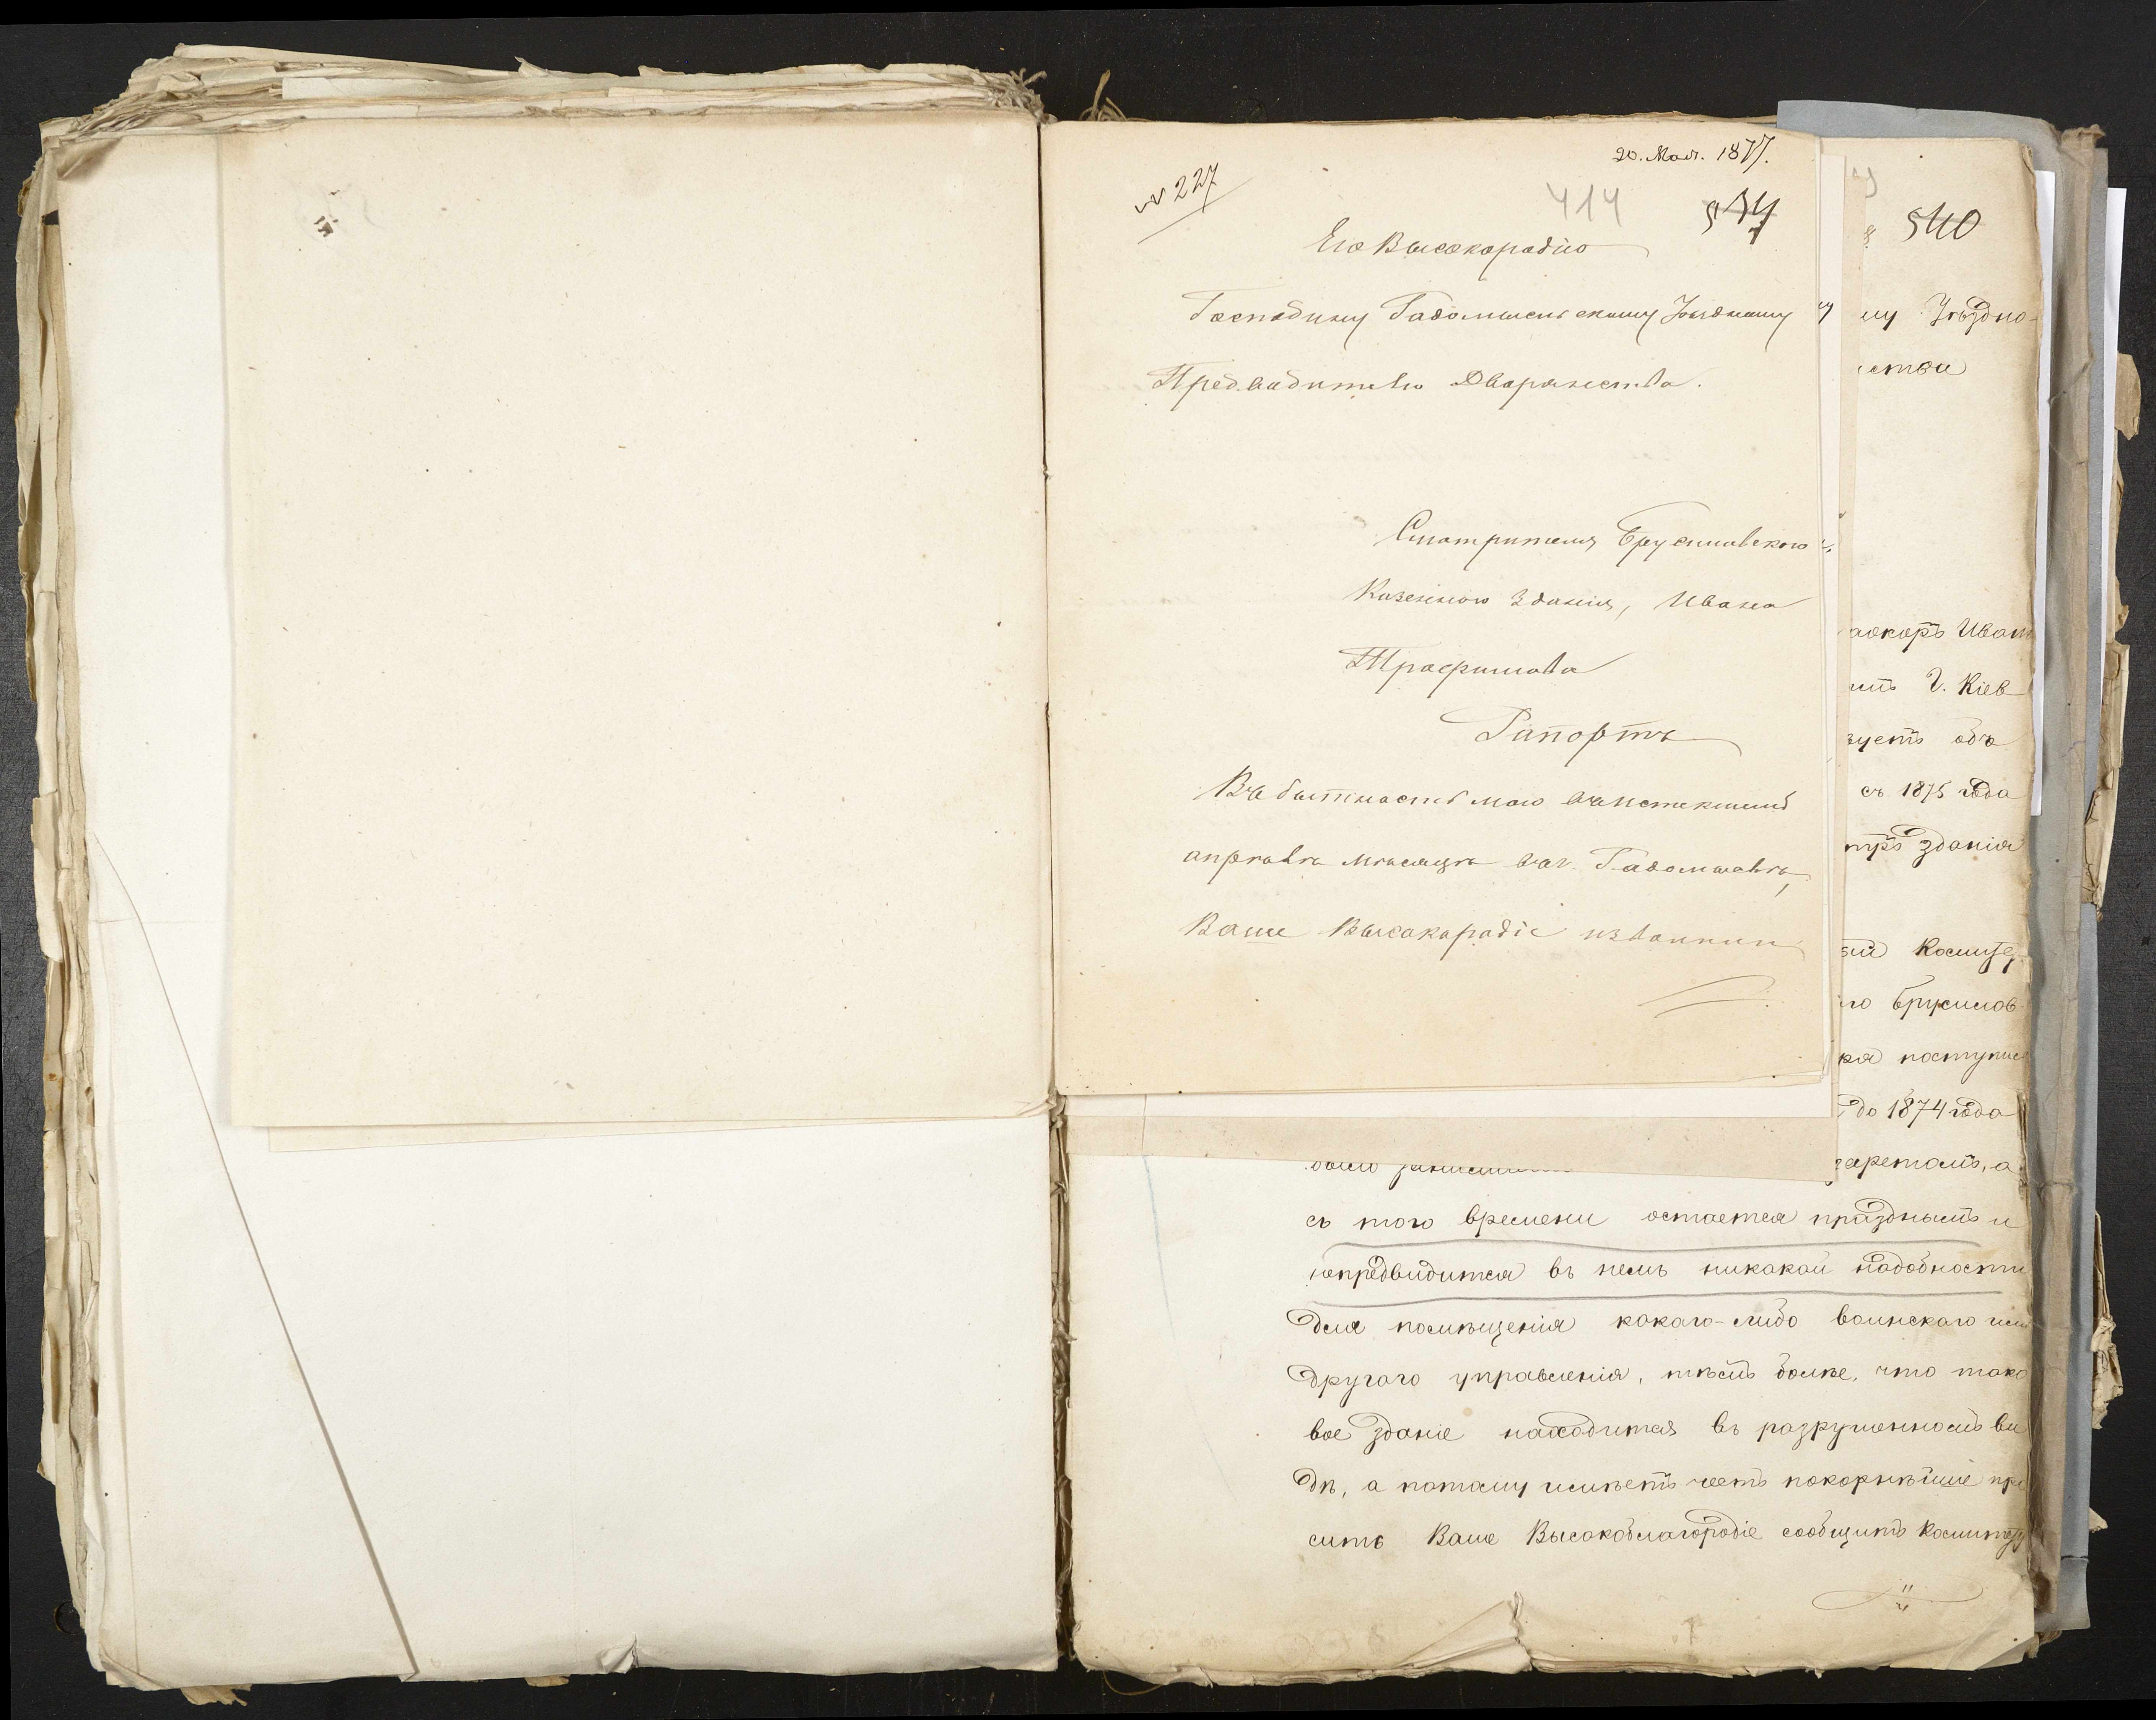 20. Мая. 1877.
№ 227
414
Его Высокородiю
Господину Радомысльскому Уѣздному
Предводителю Дворянства.
Смотрителя Брусиловского
Казенного Зданiя, Ивана
Трофимова
Рапортъ
Въ бытность мою въ истекшемъ
апрѣлѣ мѣсяцѣ въ г. Радомыслѣ,
Ваше Высокородiе изволили
540
му Уѣздно-
ства
Иван
г. Кіев
съ 1875 года
зданія
Комите
Брусилов
поступи
до 1874 года
было
съ того времени остается празднымъ и
непредвидится въ немъ никакой надобности
для помѣщенія какого-либо воинскаго или
другого управленія, тѣмъ болѣе, что тако
вое зданіе находится въ разрушенномъ ви
дѣ, а потому имѣетъ честь покорнѣйше про
сить Ваше Высокоблагородіе сообщить Комитету